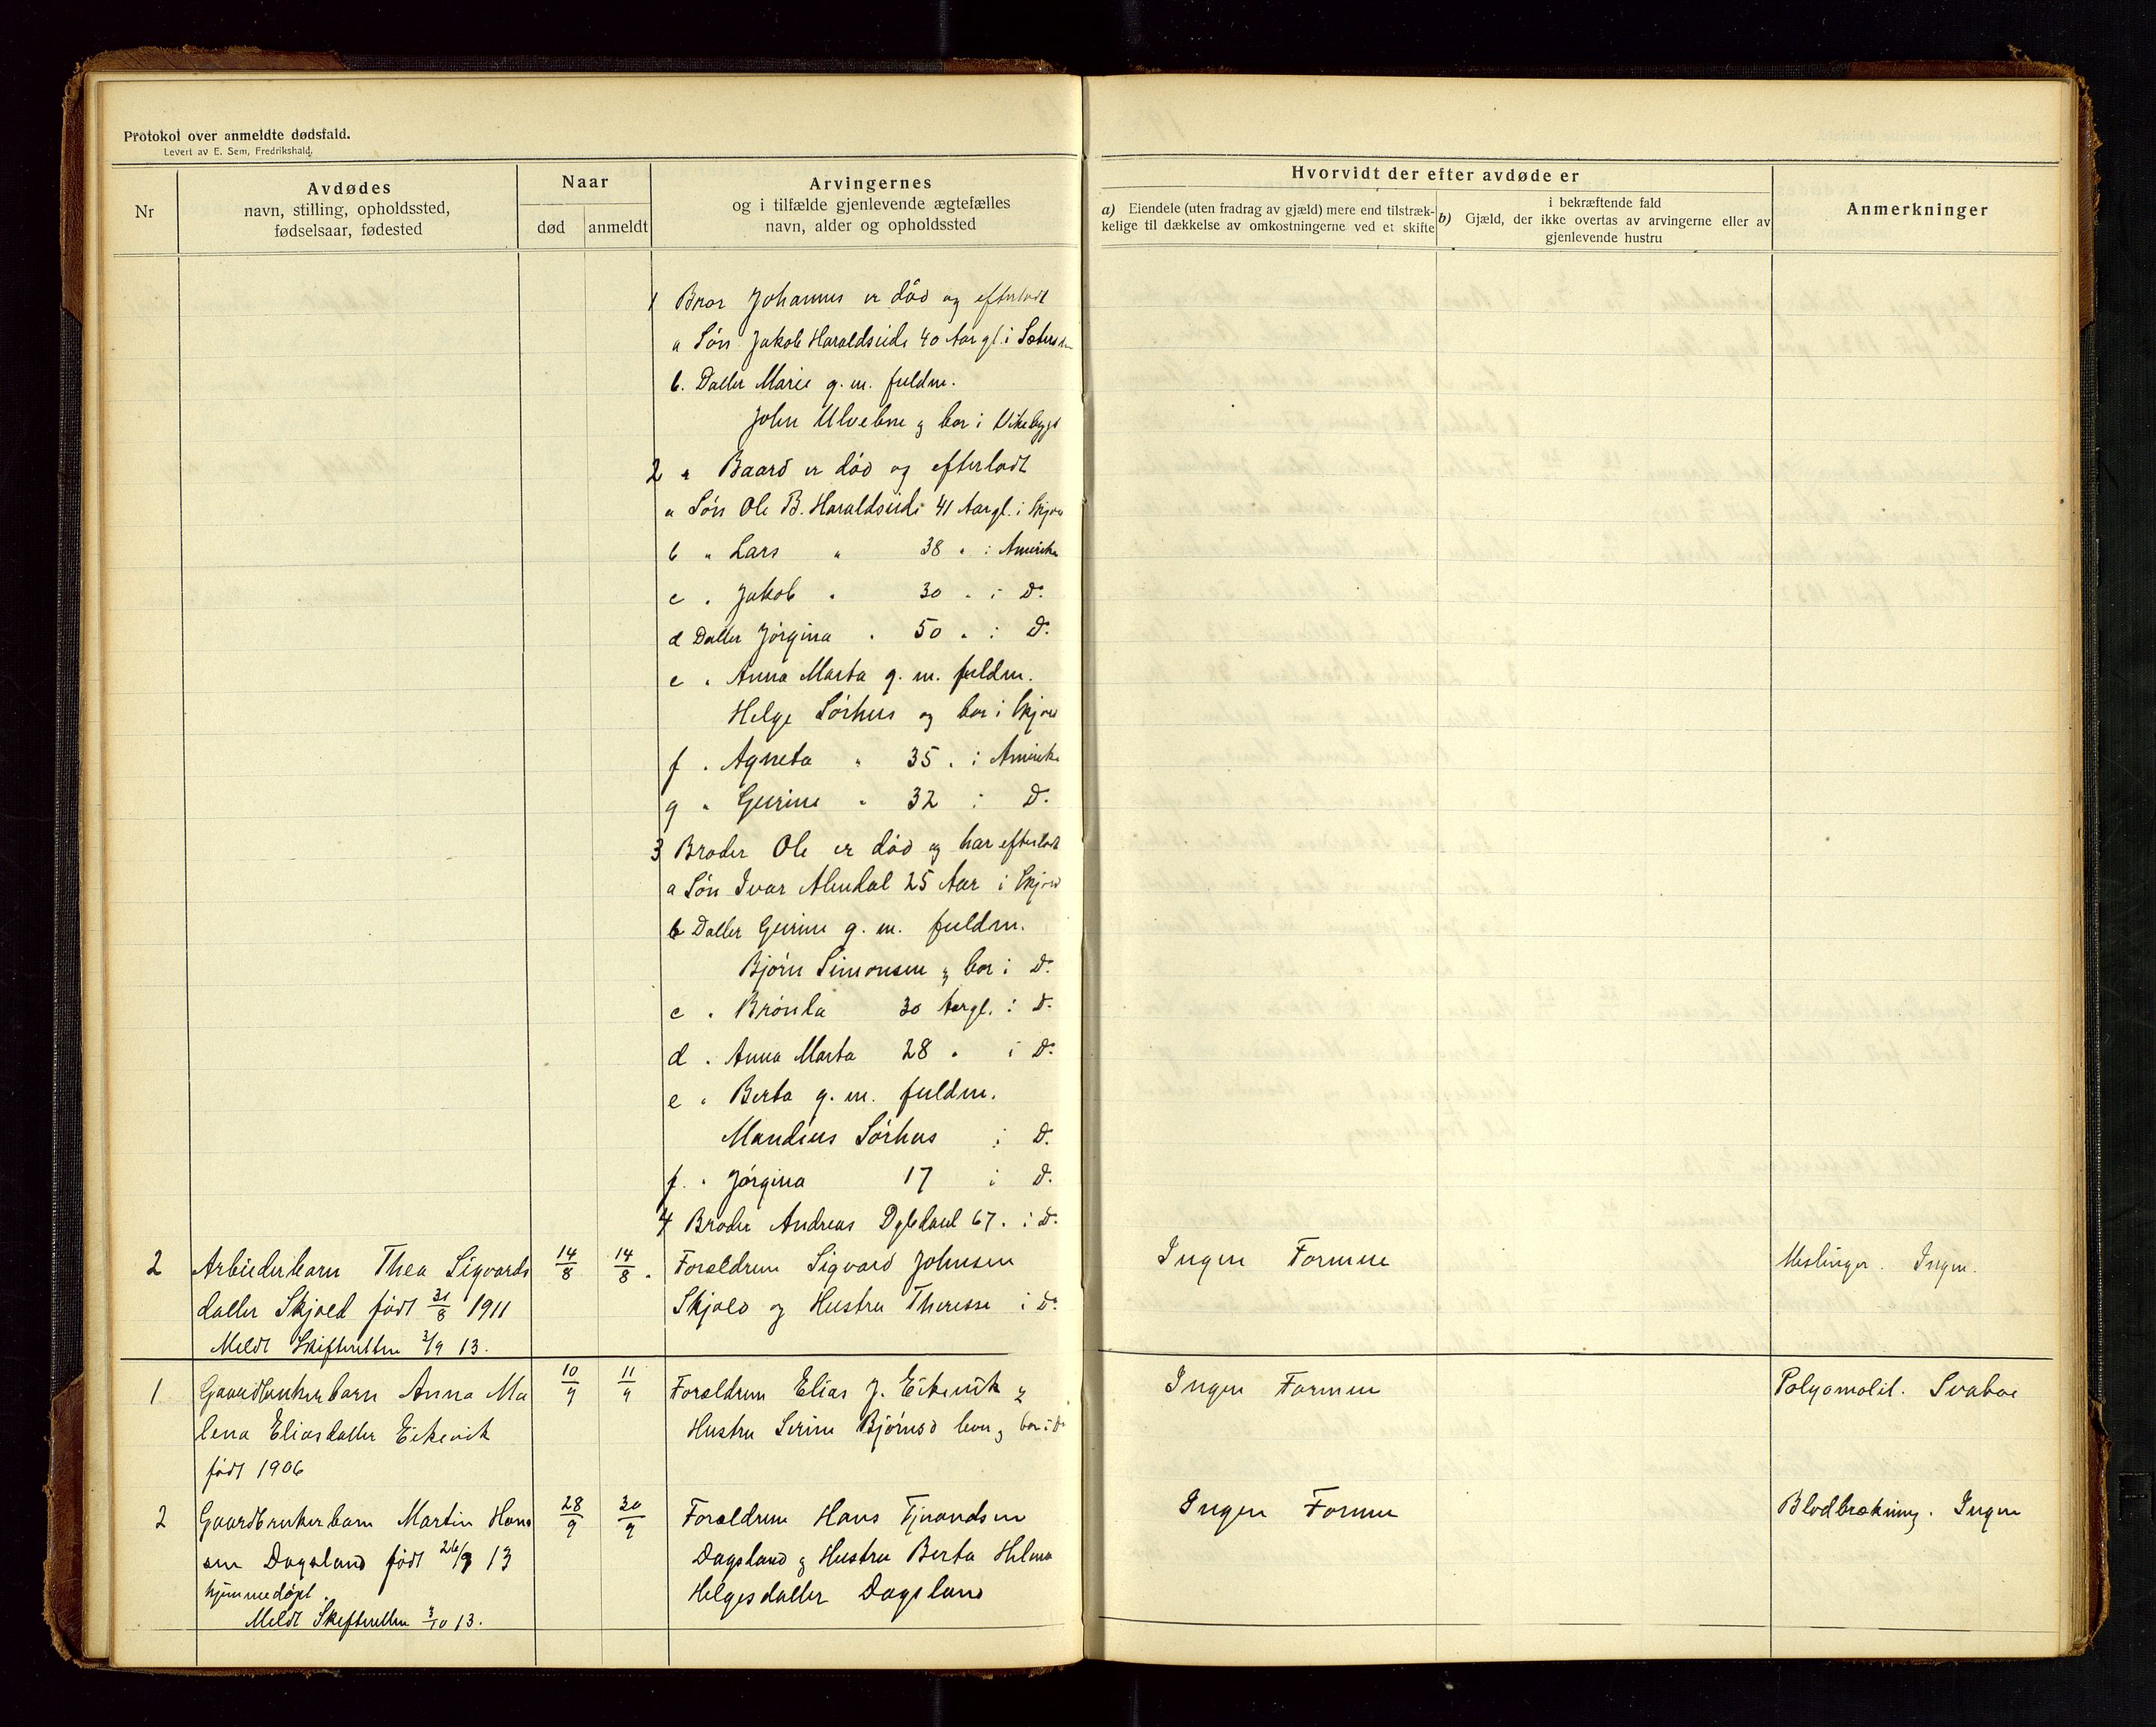 Protokol over anmeldte dødsfald.
Levert av E. Sem, Fredrikshald.
Nr
Avdødes
navn, stilling, opholdssted,
fødselsaar, fødested
Naar
død
anmeldt
Arvingernes
og i tilfælde gjenlevende ægtefælles
navn, alder og opholdssted
Hvorvidt der efter avdøde er
a) Eiendele (uten fradrag av gjæld) mere end tilstræk-
kelige til dækkelse av omkostningerne ved et skifte
i bekræftende fald
b) Gjæld, der ikke overtas av arvingerne eller av
gjenlevende hustru
Anmerkninger
1 Bror Johannes er död og efterladt
a Sön Jakob Haraldseide 40 Aar gl. i
b. Datter Marie g. m. fuldm.
John Ulvebne & bor i Vikebygd
2 " Baard er död og efterladt
a Sön Ole B. Haraldseide 41 Aar gl. i Skjold
b " Lars " 38 " i Amerika
c " Jakob " 30 " i Do
d Datter Jörgina " 50 " i Do
e " Anna Marta g. m. fuldm.
Helge Sörhus og bor i Skjold
f " Agneta " 35 " i Amerika
g " Gurine " 32 i Do
3 Broder Ole er död og har efterladt
a Sön Ivar Alendal 25 Aar i Skjold
b Datter Gurine g. m. fuldm.
Björn Simonsen & bor i Do
c " Brönla 30 Aar gl. i Do
d " Anna Marta 28 " i Do
e " Berta g. m. fuldm.
Mandius Sörhus i Do
f. " Jörgina 17 i Do
4 Broder Andreas Dybdahl 67 " i Do
2 Arbeiderbarn Thea Sigvards
datter Skjold født 31/8 1911
Meldt Skifteretten 3/9 13.
14/8 14/8.
Forældrene Sigvard Johnsen
Skjold og Hustru Therese i Do
Ingen Formue
Meslinger. Ingen.
1 Gaardbrukerbarn Anna Ma
lena Eliasdatter Eikevik
født 1906
10/9 11/9
Forældrene Elias J. Eikevik &
Hustru Serine Björnsd lever & bor i Do
Ingen Formue
Svaboe
2 Gaardbrukerbarn Martin Hans
sen Dagsland født 26/9 13
hjemmedøpt.
Meldt Skifteretten 3/10 13.
28/9 30/9
Forældrene Hans Tjerandsen
Dagsland & Hustru Berta Helene
Helgesdatter Dagsland
Ingen Formue
Blodbrækning. Ingen